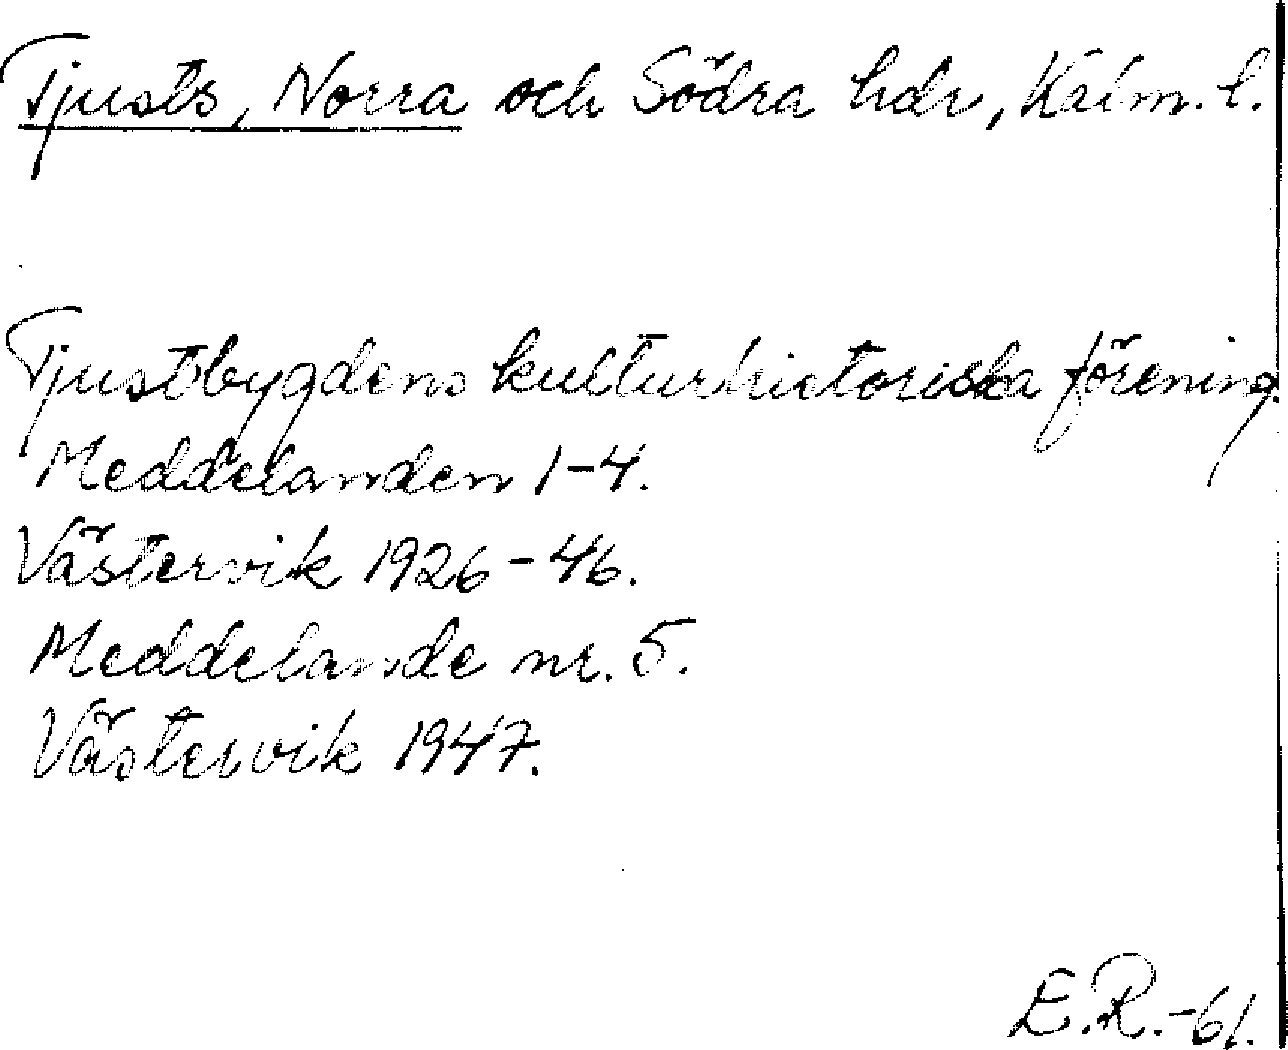 Tjusts, Norra och Södra hdr, Kalm. l.
Tjustbygdens kulturhistoriska förening.
Meddelanden 1-4.
Västervik 1926-46.
Meddelande nr. 5.
Västervik 1947.
E.R.-61.